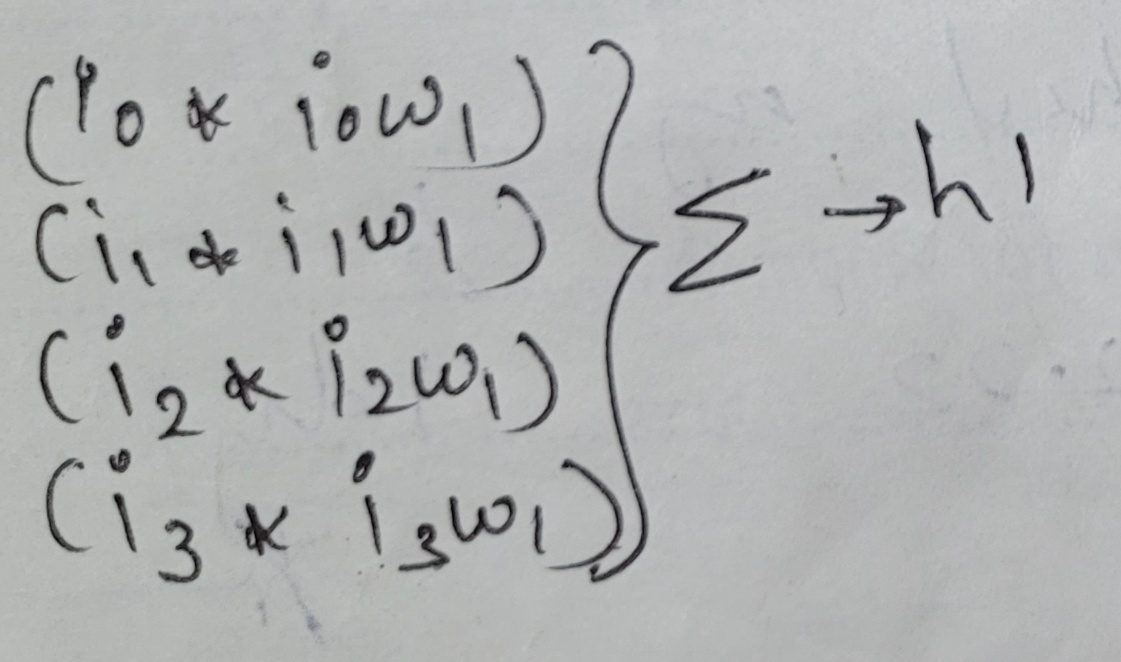 (i₀ * i₀w₁)
(i₁ * i₁w₁)
(i₂ * i₂w₁)
(i₃ * i₃w₁)
} Σ → h1